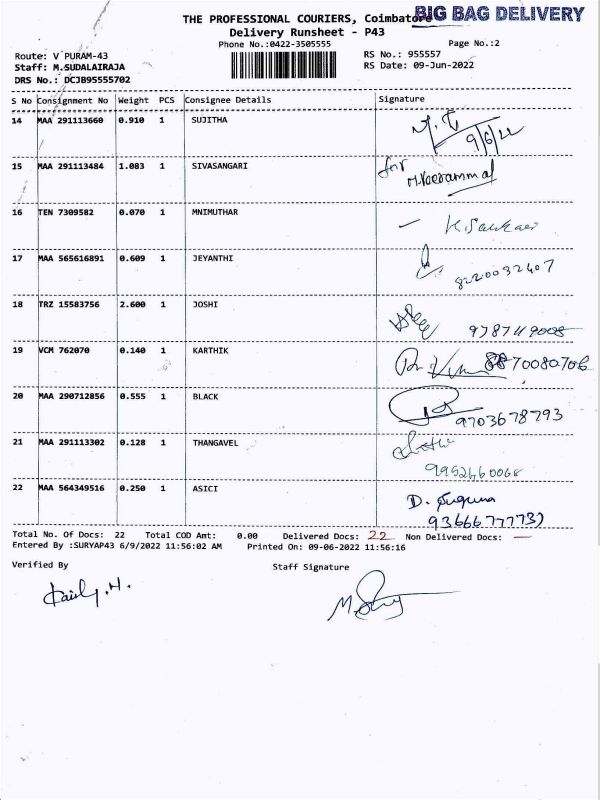 THE PROFESSIONAL COURIERS, Coimbatore BIG BAG DELIVERY
Delivery Runsheet - P43
Phone No.:0422-3505555 Page No.:2
Route: V PURAM-43 RS No.: 955557
Staff: M.SUDALAIRAJA RS Date: 09-Jun-2022
DRS No.: DCJB95555702
S No Consignment No Weight PCS Consignee Details Signature
14 MAA 291113660 0.910 1 SUJITHA 9/6/22
15 MAA 291113484 1.083 1 SIVASANGARI for M.Veerammal
16 TEN 7309582 0.070 1 MNIMUTHAR
17 MAA 565616891 0.609 1 JEYANTHI 8220032407
18 TRZ 15583756 2.600 1 JOSHI
19 VCM 762070 0.140 1 KARTHIK
20 MAA 290712856 0.555 1 BLACK 9703678793
21 MAA 291113302 0.128 1 THANGAVEL
22 MAA 564349516 0.250 1 ASICI D. Suguna
Total No. Of Docs: 22 Total COD Amt: 0.00 Delivered Docs: 22 Non Delivered Docs: —
Entered By :SURYAP43 6/9/2022 11:56:02 AM Printed On: 09-06-2022 11:56:16
Verified By Staff Signature